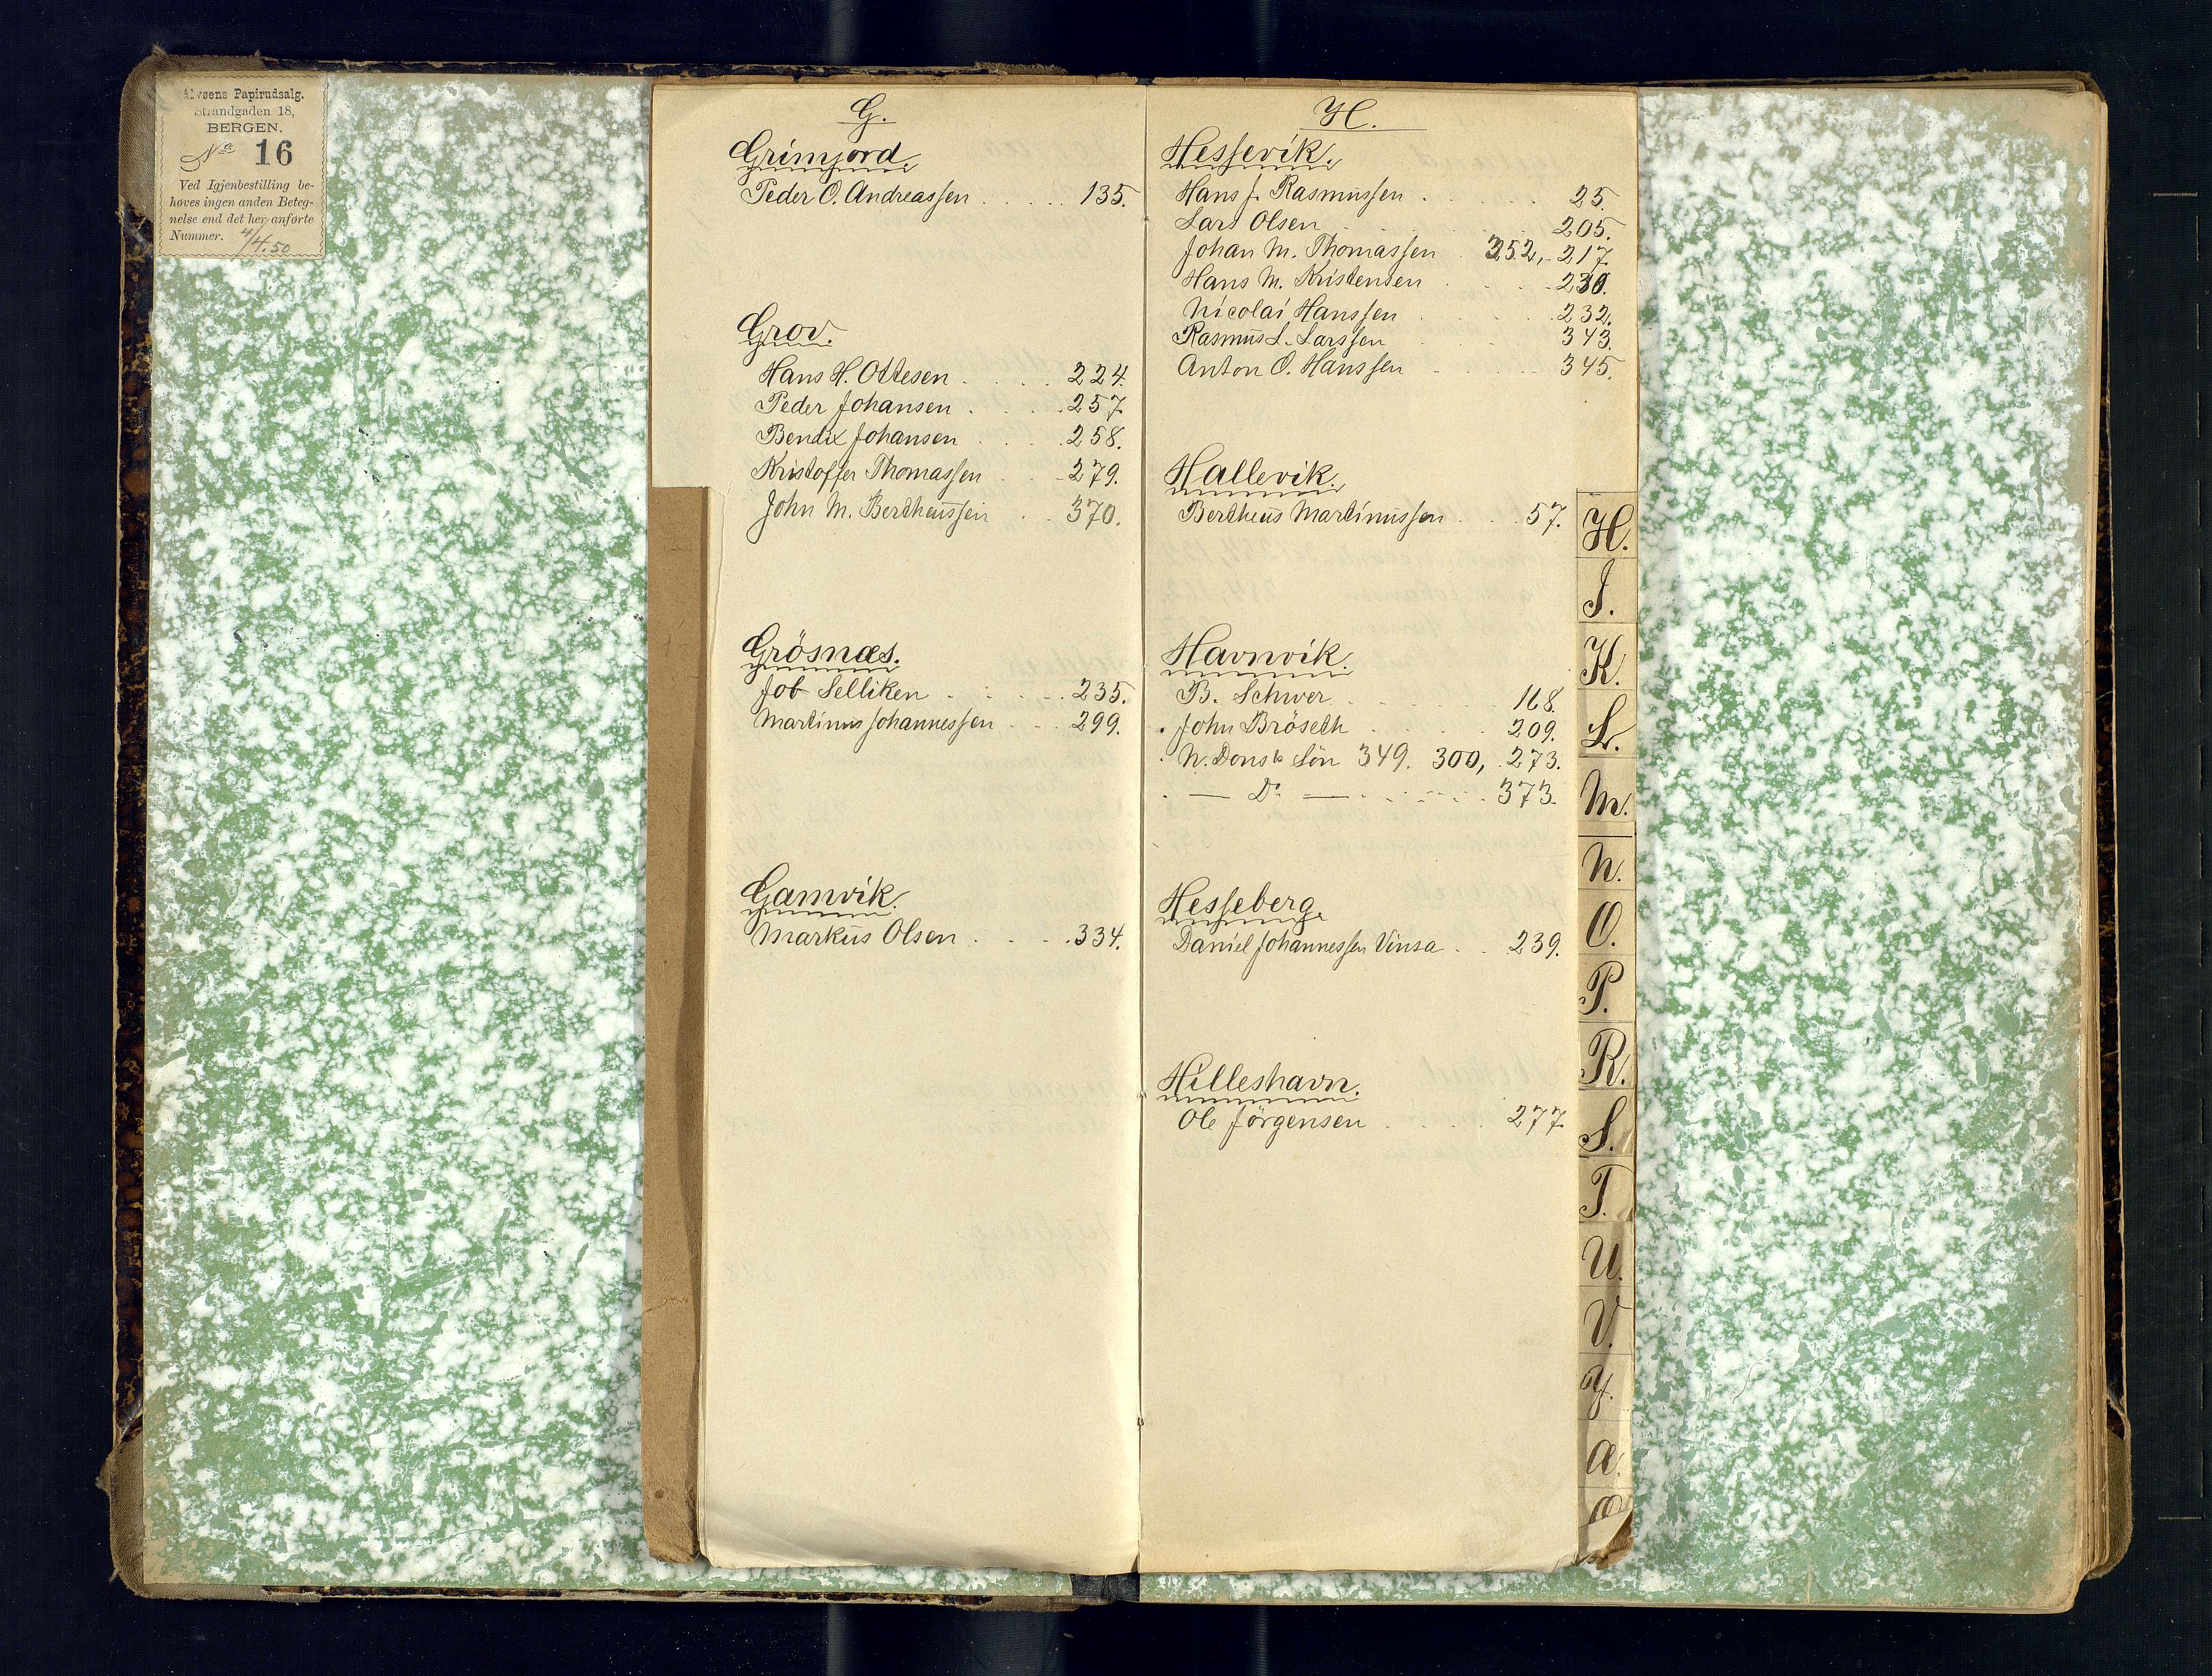 Alvøens Papirudsalg.
Strandgaden 18,
BERGEN.
No 16
Ved Igjenbestilling be-
høves ingen anden Beteg-
nelse end det her anførte
Nummer. 4/4.50
G.
Grimjord.
Peder O. Andreassen . . . . . 135.
Grov.
Hans H. Ottesen . . . . 224.
Peder Johansen . . . . 257
Bendix Johansen . . . . 258.
Kristoffer Thomassen . . 279.
John M. Bertheussen . . 370.
Grösnæs.
Job Selliken . . . . . 235.
Martinus Johannessen . . . 299.
Gamvik.
Markus Olsen . . . . 334.
H.
Hessevik.
Hans J. Rasmussen . . . . 25.
Lars Olsen . . . . 205.
Johan M. Thomassen 352, 217.
Hans M. Kristensen . . . 230.
Nicolai Hanssen . . . . 232.
Rasmus L. Larssen . . . 343.
Anton O. Hanssen . . . . 345.
Hallevik.
Bertheus Martinussen . . . 57.
Havnvik.
B. Schwer . . . . . 168.
John Bröseth . . . . 209.
N. Dons & Sön 349. 300, 273.
— Do — . . . . . 373.
Hesseberg.
Daniel Johannessen Vinsa . . 239.
Hilleshavn.
Ole Jörgensen . . . . 277.
H.
I.
K.
L.
M.
N.
O.
P.
R.
S.
T.
U.
V.
Y.
Æ.
Ø